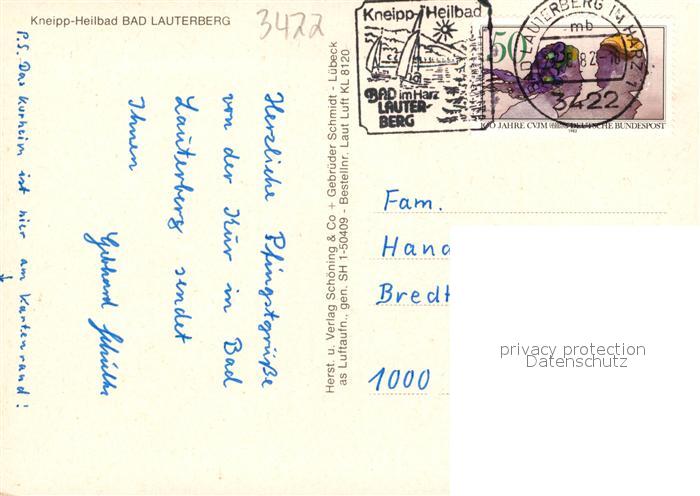 Kneipp-Heilbad BAD LAUTERBERG
3422
Kneipp-Heilbad
BAD im Harz
LAUTER-
BERG
BAD LAUTERBERG IM HARZ 1
mb
3422
50
100 JAHRE CVJM DEUTSCHE BUNDESPOST
Herzliche Pfingstgrüße
von der Kur in Bad
Lauterberg sendet
Ihnen
Gebhard Schulth
P.S. Das Kurheim ist hier am Kartenrand!
Herst. u. Verlag Schöning & Co + Gebrüder Schmidt - Lübeck
as Luftaufn., gen. SH 1-50409 - Bestellnr. Laut Luft KL 8120
Fam.
Hand
Bredt
1000
privacy protection
Datenschutz